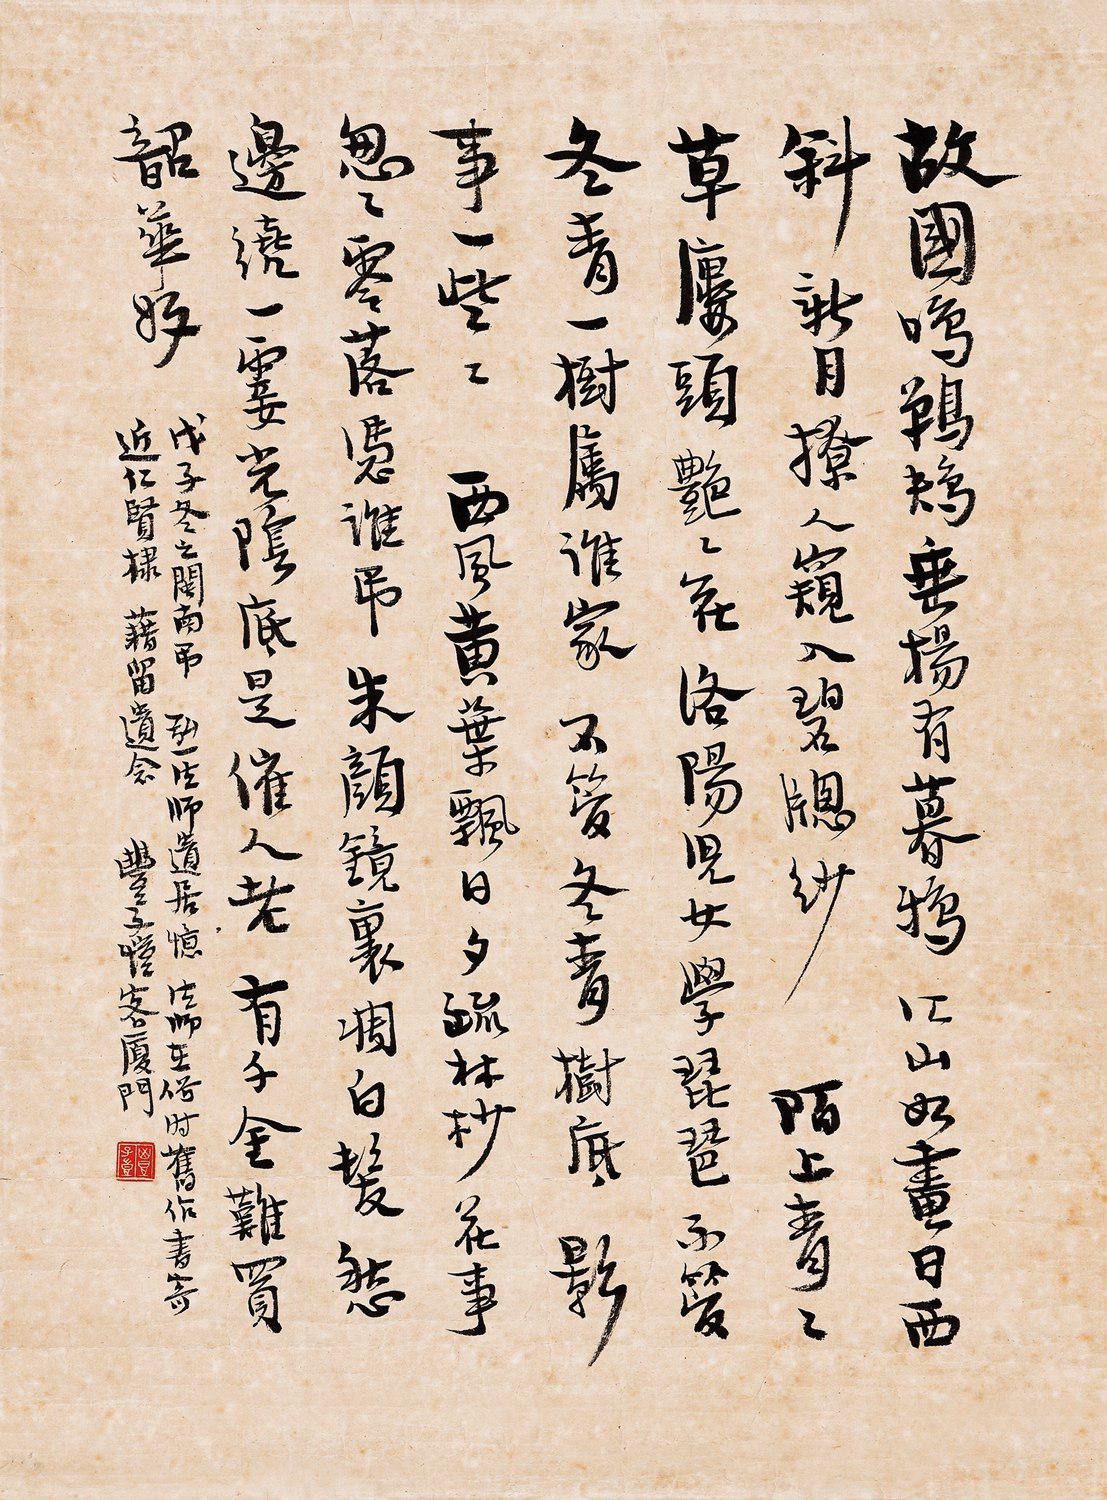 故國鳴鵜鴣垂楊有暮鴉江山如畫日西
斜新月撩人窺入碧牕紗陌上青〻
草廔頭艷〻花洛陽児女學琵琶不管
冬青一樹屬誰家不管冬青樹底影
事一些〻西風黃葉飄日夕疏林杪花事
怱〻零落憑誰弔朱顔鏡裏凋白髪愁
邊繞一霎光陰底是催人老有千金難買
韶華好
戊子冬之閩南弔弘一法師遺居憶法師在俗时舊作書寄
近仁賢棣藉留遺念豐子愷客廈門